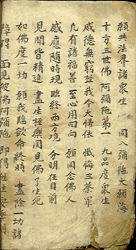 願共法界諸衆生 同入彌陀大願海
十方三世佛 阿彌陀第一 九品度衆生
威德無窮極 我今大歸依 懺悔三業罪
凡有諸福善 至心用回向 願同念佛人
感應隨時現 臨終西方境 分明在目前
見聞皆精進 生極樂國 見佛了生死
如佛度一切 願我臨欲命終時 盡除一切諸
障碍 面見彼佛阿彌陀 即得往生安